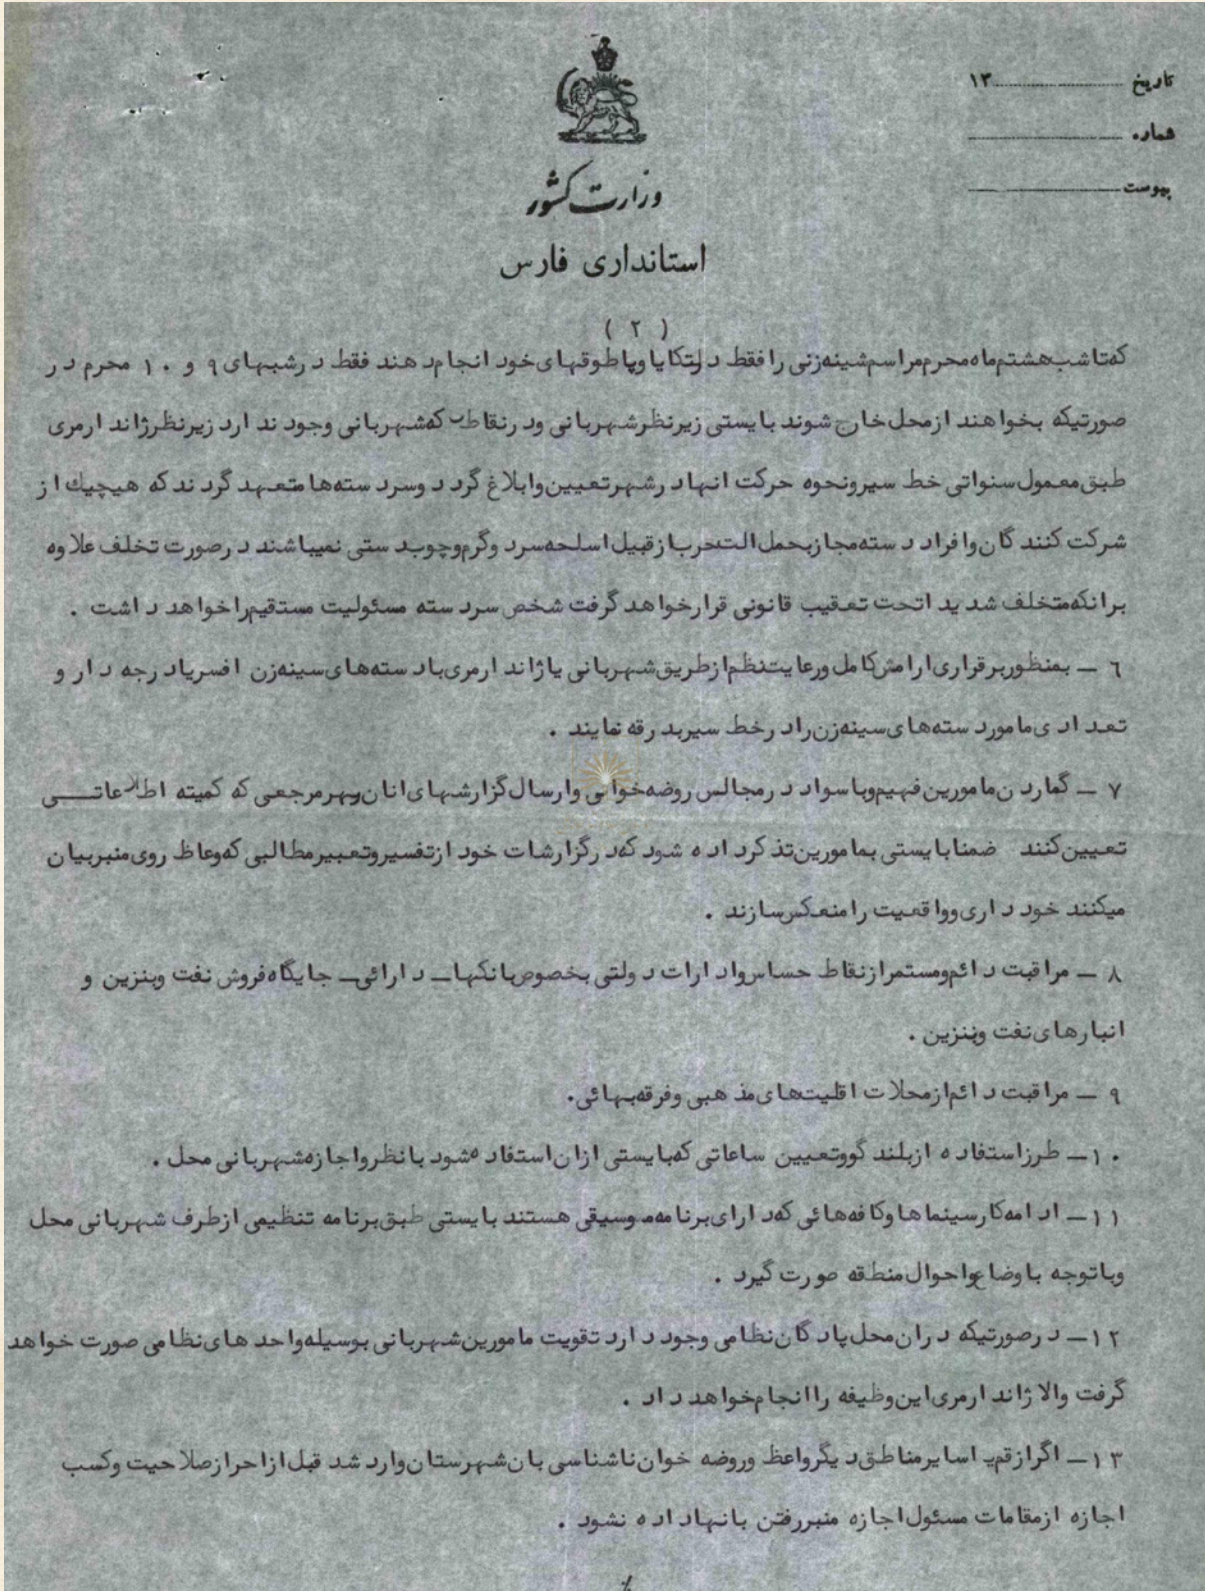 تاریخ ............ ۱۳
شماره ............
پیوست ............
وزارت کشور
استانداری فارس
( ۲ )
که تا شب هشتم ماه محرم مراسم شینه زنی را فقط در تکایا و پا طوقهای خود انجام دهند فقط در شبهای ۹ و ۱۰ محرم در
صورتیکه بخواهند از محل خارج شوند بایستی زیر نظر شهربانی و در نقاطی که شهربانی وجود ندارد زیر نظر ژاندارمری
طبق معمول سنواتی خط سیر و نحوه حرکت انها در شهر تعیین و ابلاغ گردد و سردسته ها متعهد گردند که هیچیك از
شرکت کنندگان و افراد دسته مجاز بحمل الت حرب از قبیل اسلحه سرد و گرم و چوبدستی نمیباشند در صورت تخلف علاوه
برانکه متخلف شدیدا تحت تعقیب قانونی قرار خواهد گرفت شخص سردسته مسئولیت مستقیم را خواهد داشت .
٦ ـ بمنظور برقراری ارامش کامل و رعایت نظم از طریق شهربانی یا ژاندارمری با دسته های سینه زن افسر یا درجه دار و
تعدادی مامور دسته های سینه زن را در خط سیر بدرقه نمایند .
۷ ـ گماردن مامورین فهیم و با سواد در مجالس روضه خوانی و ارسال گزارشهای انان بهر مرجعی که کمیته اطلاعاتـــی
تعیین کنند ضمنا بایستی بمامورین تذکر داده شود که در گزارشات خود از تفسیر و تعبیر مطالبی که وعاظ روی منبر بیان
میکنند خود داری و واقعیت را منعکس سازند .
۸ ـ مراقبت دائم و مستمر از نقاط حساس و ادارات دولتی بخصوص بانکها ـ دارائی ـ جایگاه فروش نفت و بنزین و
انبارهای نفت و بنزین .
۹ ـ مراقبت دائم از محلات اقلیت های مذهبی و فرقه بهائی.
۱۰ ـ طرز استفاده از بلند گو و تعیین ساعاتی که بایستی ازان استفاده شود با نظر و اجازه شهربانی محل .
۱۱ ـ ادامه کار سینماها و کافه هائی که دارای برنامه موسیقی هستند بایستی طبق برنامه تنظیمی از طرف شهربانی محل
و با توجه با وضاع و احوال منطقه صورت گیرد .
۱۲ ـ در صورتیکه دران محل پادگان نظامی وجود دارد تقویت مامورین شهربانی بوسیله واحد های نظامی صورت خواهد
گرفت و الا ژاندارمری این وظیفه را انجام خواهد داد .
۱۳ ـ اگر از قم یا سایر مناطق دیگر واعظ و روضه خوان ناشناسی بان شهرستان وارد شد قبل از احراز صلاحیت و کسب
اجازه از مقامات مسئول اجازه منبر رفتن بانها داده نشود .